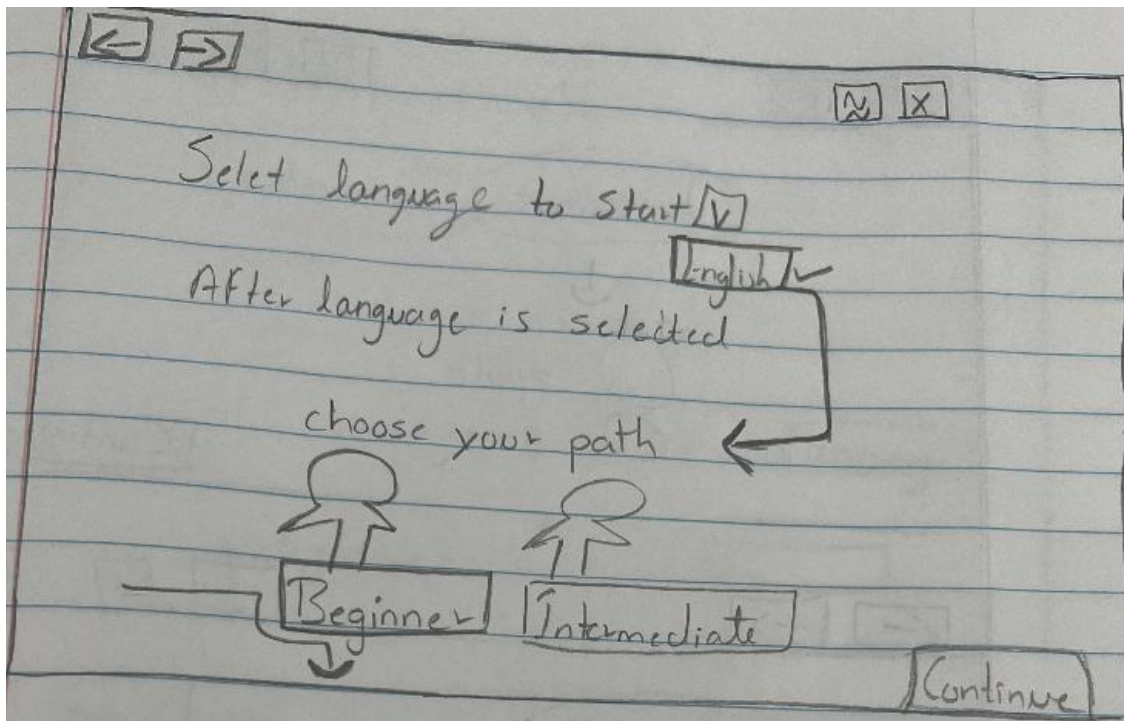 Selet language to start
English
After language is selected
choose your path
Beginner Intermediate
Continue